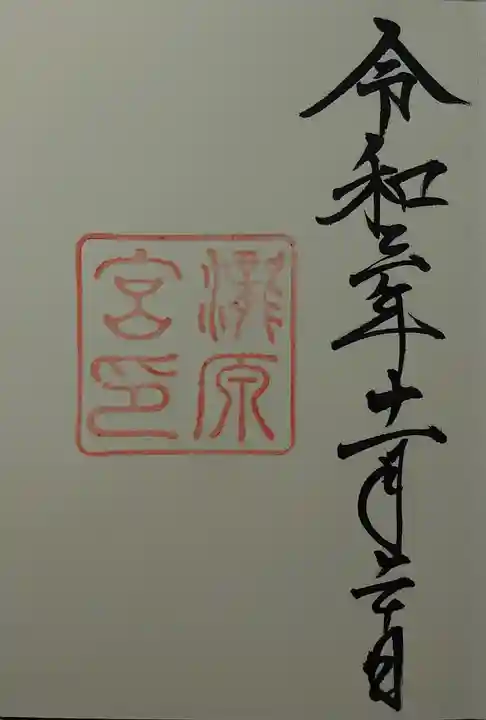 令和二年十一月二十日
瀧原
宮印